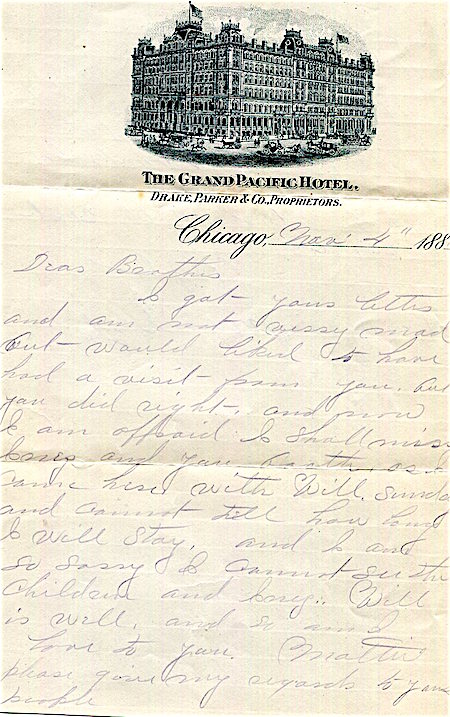 THE GRAND PACIFIC HOTEL.
DRAKE, PARKER & CO., PROPRIETORS.
Chicago, Nov 4" 188
Dear Brother
I got your letter
and am not very mad
but would liked to have
had a visit from you. but
you did right. and now
I am affraid I shall miss
and you as I
came here with Will. Sunday
and cannot tell how long
I will stay, and I am
so sorry I cannot see the
children and Will
is well, and so am I
Love to you. Mattie
please give my regards to your
people